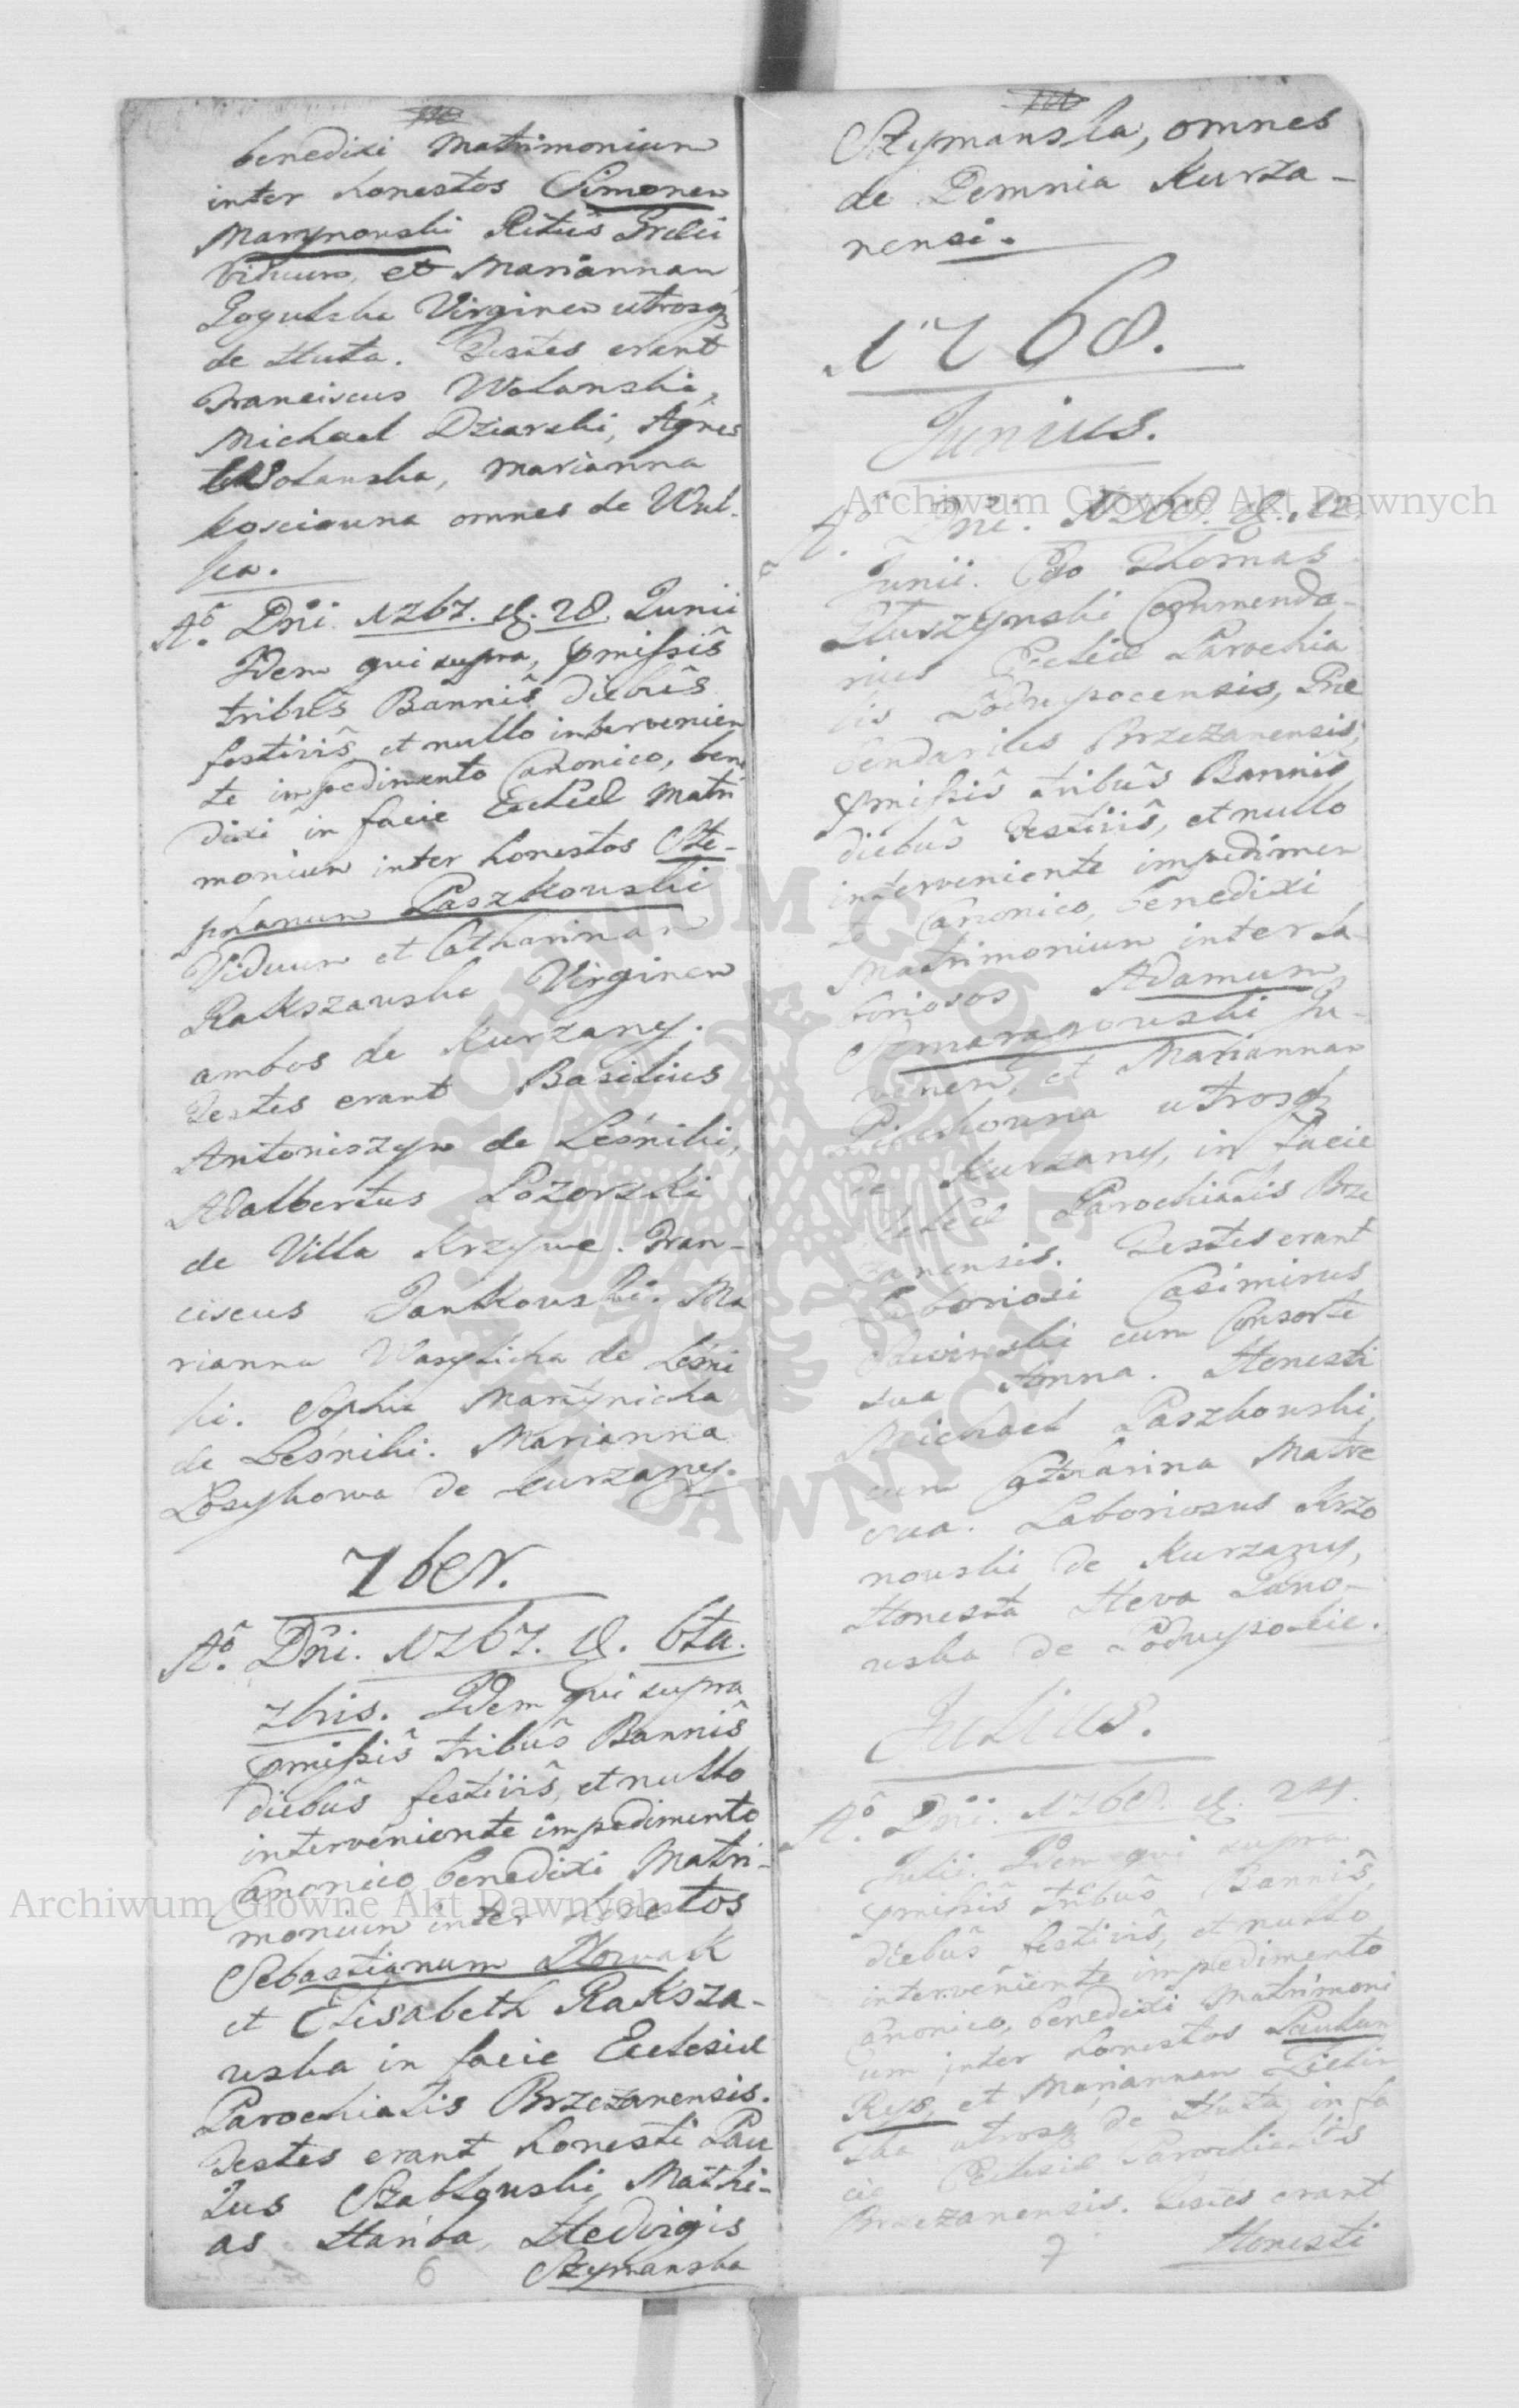 benedixi Matrimonium
inter honestos Simonem
Martynouski Ritûs Græci
Viduum, et Mariannam
Virginem utrosq
de Huta. Testes erant
Franciscus Wolanski,
Michael Dziarski, Agnes
Wolanska, Marianna
Kosciouna omnes de Wul-
ka.
Aõ. Dñi. 1767. d. 28. Junii
Idem qui supra, pmissis
tribus Bannis, diebus
festivis et nullo intervenien
te impedimento Canonico, bene
dixi in facie Eccliæ Matri
monium inter honestos Ste-
phanum Paszkouski
Viduum et Catharinam
Rakszauska Virginem
ambos de Kurzany.
Testes erant Basilius
Antoniszyn de Leśniki,
Adalbertus Pozorski
de Villa Krzywe. Fran-
ciscus Jankouski. Ma
rianna Wasylicha de Leśni
ki. Sophia Martynicha
de Leśniki. Marianna
Losykowa de Kurzany.
7ber.
Aõ. Dñi. 1767. d. 6ta.
7bris. Idem qui supra
pmissis tribus Bannis
diebus festivis, et nullo
interveniente impedimento
Canonico benedixi Matri-
monium inter honestos
Sebastianum Nowak
et Elisabeth Raksza-
uska in facie Ecclesiæ
Parochialis Brzezanensis.
Testes erant honesti Pau
lus Szablouski, Mathi-
as Hańba, Hedvigis
Szymanska
6
Szymanska, omnes
de Demnia Kurza-
nensi.
1768.
Junius.
Aõ. Dñi. 1768. d. 12.
Junii. Ego Thomas
Tłuszzynski Commenda-
rius Eccliæ Parochia
lis Podwysocensis, Præ
bendarius Brzezanensis,
pmissis tribus Bannis
diebus Festivis, et nullo
interveniente impedimen
to Canonico, benedixi
Matrimonium inter La-
boriosos Adamum
Szmaragouski Ju-
venem, et Mariannam
utrosq
de Kurzany, in facie
Eccliæ Parochialis Brze
zanensis. Testes erant
Laboriosi Casimirus
cum Consorte
sua Anna. Honesti
Michael Paszkouski
cum Catharina Matre
sua. Laboriosus Krzo
nouski de Kurzany,
Honesta Heva Pano-
uska de Podwysokie.
Julius.
Aõ. Dñi. 1768. d. 24.
Julii. Idem qui supra
pmissis tribus Bannis,
diebus festivis, et nullo
interveniente impedimento
Canonico, benedixi Matrimoni
um inter honestos Paulum
Rys, et Mariannam Zielin
ska utrosq de Huta, in fa
cie Ecclesiæ Parochialis
Brzezanensis. Testes erant
7 Honesti
Archiwum Główne Akt Dawnych
Archiwum Główne Akt Dawnych
ARCHIWUM GŁÓWNE AKT DAWNYCH